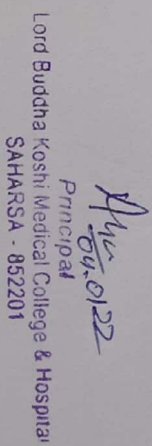 04.01.22
Principal
Lord Buddha Koshi Medical College & Hospital
SAHARSA - 852201